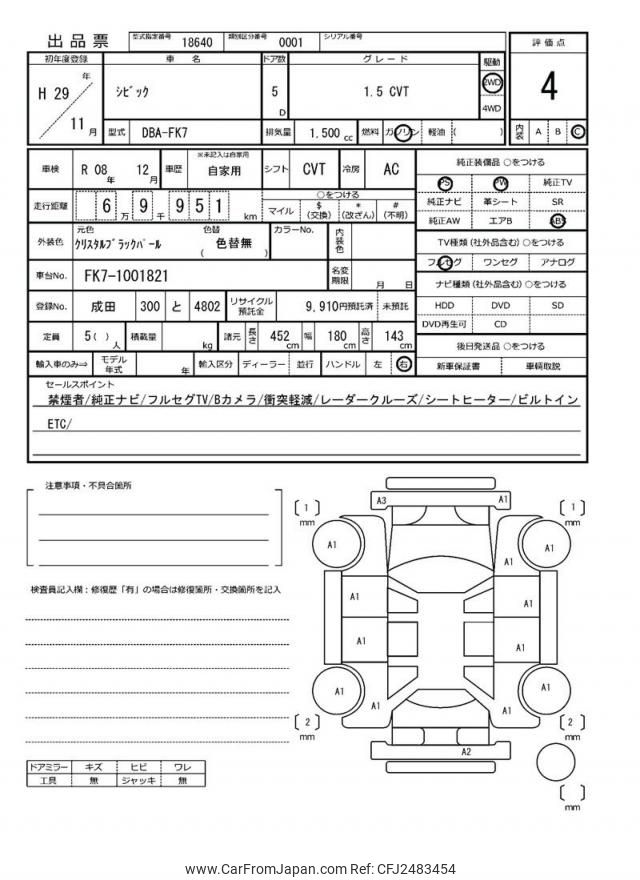 出品票 型式指定番号 18640 類別区分番号 0001 シリアル番号
初年度登録 車 名 ドア数 グレード 駆動 評価点
H 29 年 11 月 ｼﾋﾞｯｸ 5 D 1.5 CVT 2WD 4WD 4
型式 DBA-FK7 排気量 1.500 cc 燃料 ガソリン 軽油 ( ) 内装 A B C
車検 R 08 年 12 月 車歴 ※未記入は自家用 自家用 シフト CVT 冷房 AC
純正装備品 ○をつける
PS PW 純正TV
純正ナビ 革シート SR
純正AW エアB ABS
走行距離 6 万 9 千 9 5 1 km
○をつける
マイル $ (交換) * (改ざん) # (不明)
TV種類 (社外品含む) ○をつける
フルセグ ワンセグ アナログ
外装色 元色 ｸﾘｽﾀﾙﾌﾞﾗｯｸﾊﾟｰﾙ 色替 ( 色替無 ) カラーNo. 内装色
ナビ種類 (社外品含む) ○をつける
HDD DVD SD
DVD再生可 CD
車台No. FK7-1001821 名変期限 月 日
登録No. 成田 300 と 4802 リサイクル預託金 9,910円預託済 未預託
定員 5 ( ) 人 積載量 kg 諸元 長さ 452 cm 幅 180 cm 高さ 143 cm
後日発送品 ○をつける
新車保証書 車輌取説
輸入車のみ⇒ モデル年式 年 輸入区分 ディーラー 並行 ハンドル 左 右
セールスポイント
禁煙者/純正ナビ/フルセグTV/Bカメラ/衝突軽減/レーダークルーズ/シートヒーター/ビルトイン
ETC/
注意事項・不具合箇所
検査員記入欄：修復歴「有」の場合は修復箇所・交換箇所を記入
ドアミラー キズ ヒビ ワレ
工具 無 ジャッキ 無
A3 A1
[ 1 ] mm [ 1 ] mm
A1 A1 A1
A1 A1
A1 A1
A1 A1 A1 A1
[ 2 ] mm [ 2 ] mm
A2
[ ] mm
www.CarFromJapan.com Ref: CFJ2483454